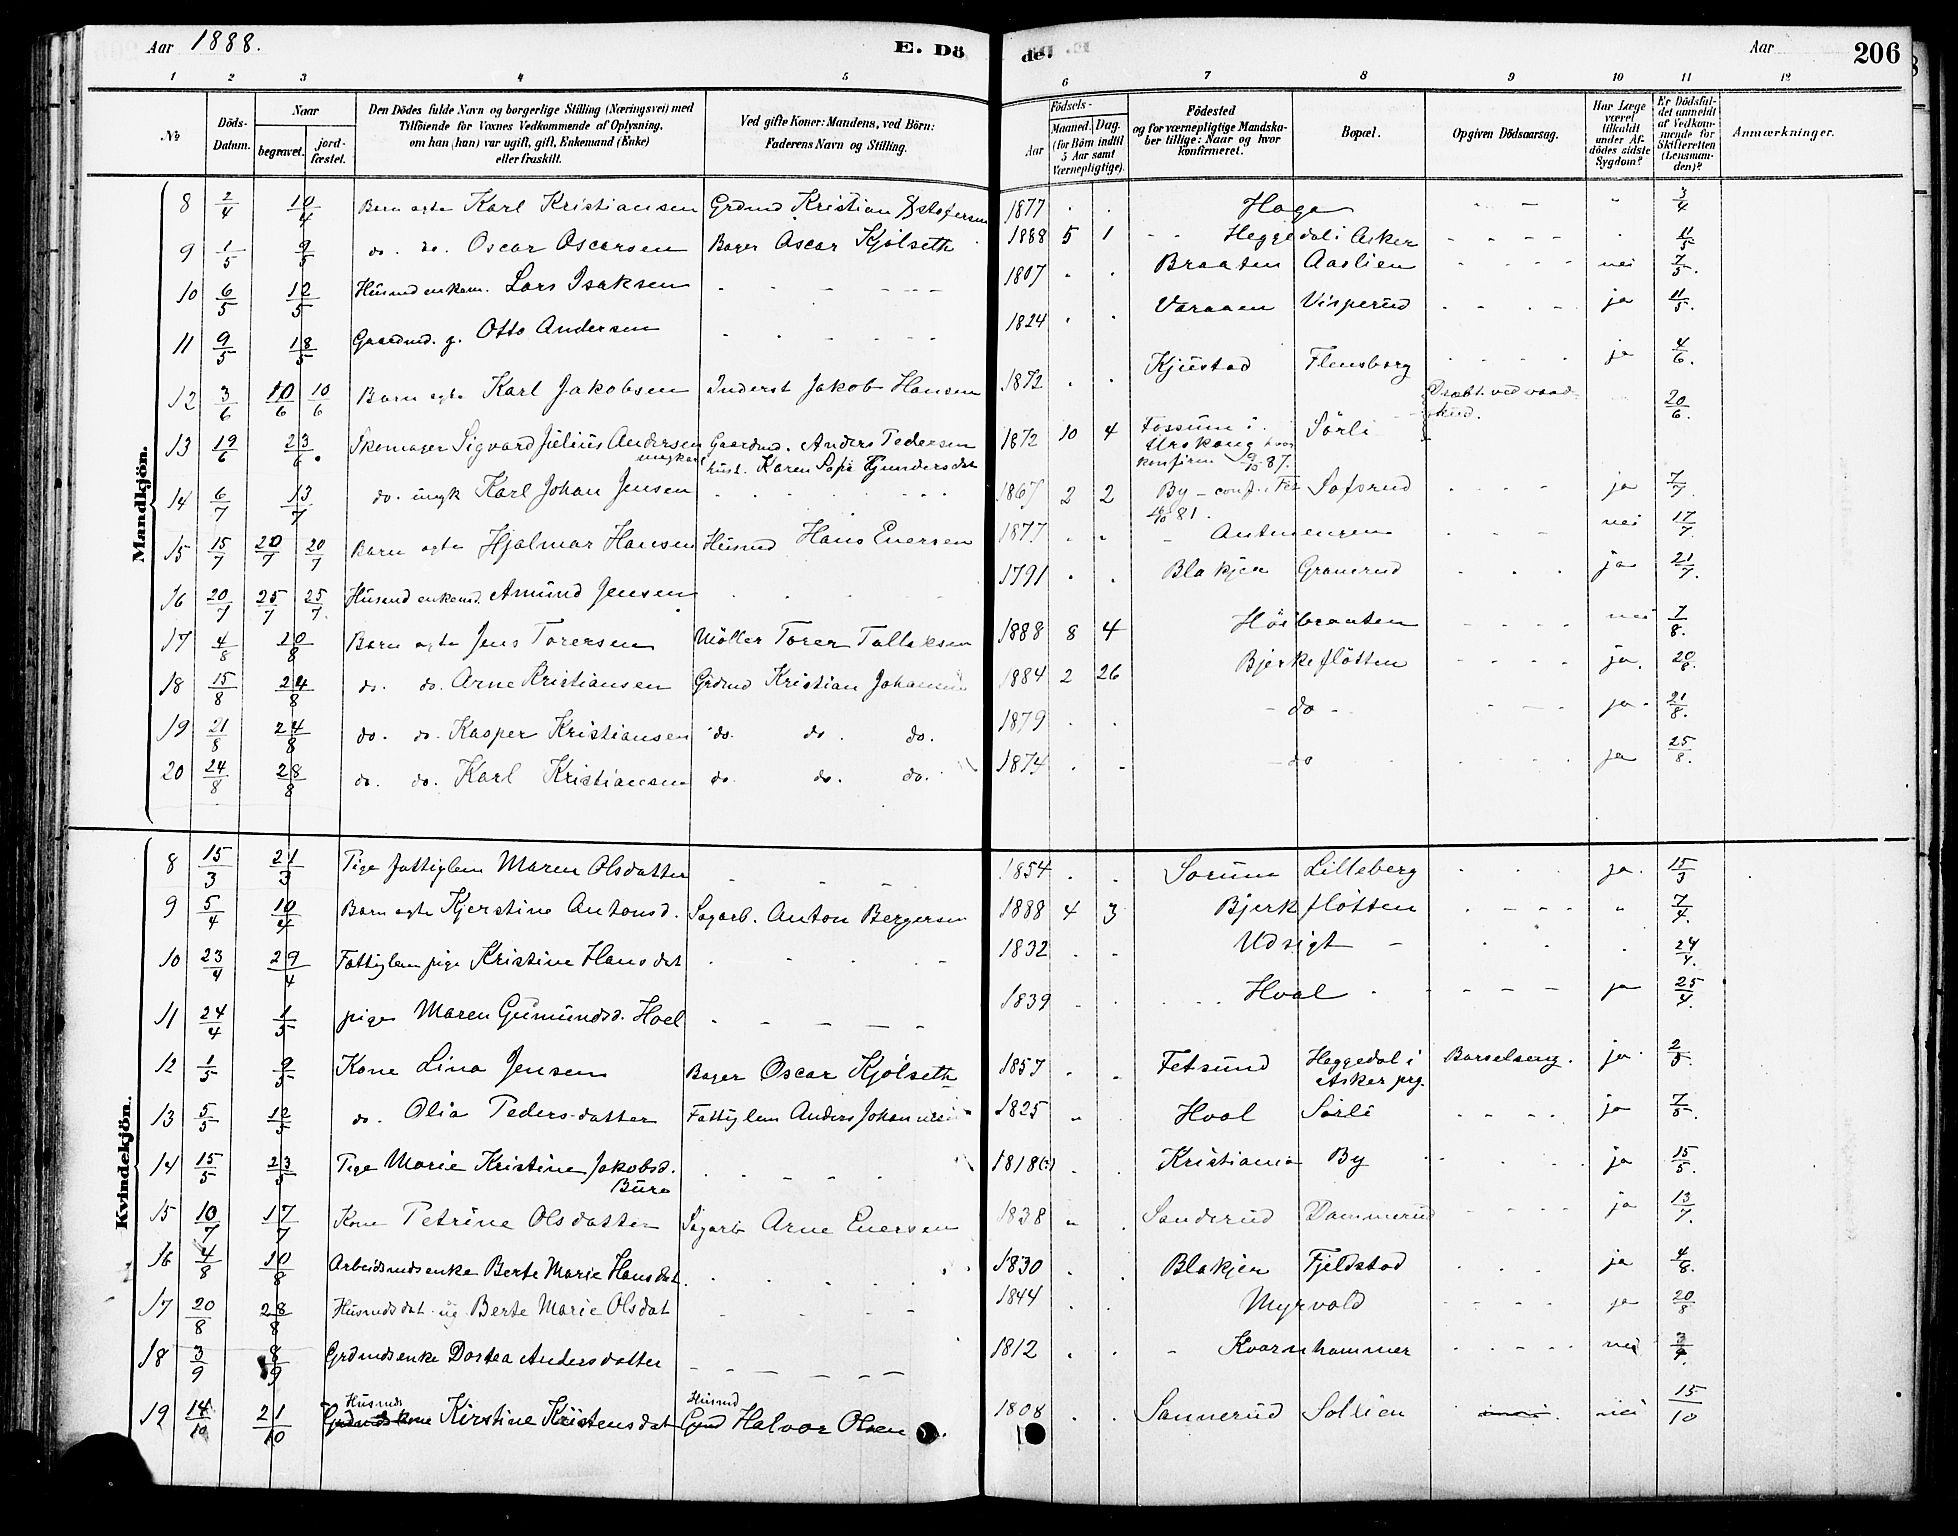 Aar 1888. E. Dö de. Aar 206
1 2 3 4 5 6 7 8 9 10 11 12
No Döds-Datum. Naar begravet. jord-fæstet. Den Dödes fulde Navn og borgerlige Stilling (Næringsvei) med Tilföiende for Voxnes Vedkommende af Oplysning, om han (hun) var ugift, gift, Enkemand (Enke) eller fraskilt. Ved gifte Koner: Mandens, ved Börn: Faderens Navn og Stilling. Födsels- Aar Maaned. Dag. (for Börn indtil 5 Aar samt Værnepligtige). Födested og for værnepligtige Mandskaber tillige: Naar og hvor konfirmeret. Bopæl. Opgiven Dödsaarsag. Har Læge været tilkaldt under Afdödes sidste Sygdom? Er Dödsfaldet anmeldt af Vedkommende for Skifteretten (Lensmanden)? Anmærkninger.
Mandkjön.
8 2/4 10/4 Barn ægte Karl Kristiansen Grdmd Kristian 1877 Haga 3/4
9 1/5 9/5 do. do. Oscar Oscarsen Bager Oscar Kjölseth 1888 5 1 Heggedal i Asker 11/5
10 6/5 12/5 Husmd enkem. Lars Isaksen 1807 Braaten Aaslien nei 7/5.
11 9/5 18/5 Gaardmd. g. Otto Andersen 1824 Varaaen Visperud ja 11/5.
12 3/6 10/6 10/6 Barn ægte Karl Jakobsen Inderst Jakob Hansen 1872 Kjustad Flensborg ja 4/6.
13 19/6 23/6. Skomager Sigvard Julius Andersen ungkarl Gaardmd. Anders Pedersen hust. Karen Sofie 1872 10 4 Fossum i Urskoug hvor konfirm 87. Sörli ved vaad- 20/6.
14 6/7 13/7 do. ungk Karl Johan Jensen 1867 2 2 By - conf. i Fet 81. Sofsrud ja 7/7.
15 15/7 20/7 20/7 Barn ægte Hjalmar Hansen Husmd Hans Evensen 1877 nei 17/7.
16 20/7 25/7 25/7. Husmd enkemd. Amund Jensen 1791 Blakjer Granerud ja 21/7.
17 4/8 20/8 Barn ægte Jens Torersen Möller Torer Tollaksen 1888 8 4 Höibraaten nei 7/8.
18 15/8 24/8 do. do. Arne Kristiansen Grdmd Kristian Johansen 1884 2 26 Bjerkeflötten ja. 20/8.
19 21/8 24/8 do. do. Kasper Kristiansen do. do. do. 1879 do ja. 21/8.
20 24/8 28/8 do. do. Karl Kristiansen do. do. do. 1874 do ja 25/8.
Kvindekjön.
8 15/3 21/3 Pige fattiglem Maren Olsdatter 1854 Sorum Lilleberg ja. 15/3
9 5/4 10/4 Barn ægte Kjerstine Antonsd. Sagarb. Anton Bergersen 1888 4 3 Bjerkflötten 7/4.
10 23/4 29/4 Fattiglem pige Kristine Hansdat 1832 Udsigt 24/4.
11 24/4 1/5 pige Maren Gumundsd. Hoel 1839 Hval ja 25/4.
12 1/5 9/5 Kone Lina Jensen Bager Oscar Kjölseth 1857 Fetsund Heggedal i Asker prg. Barselseng. ja. 2/5.
13 5/5 12/5 do. Olia Pedersdatter Fattiglem Anders Johannes 1825 Hval Sörli ja 7/5.
14 15/5 23/5 Pige Marie Kristine Jakobsd. Bure 1818 Kristiania By ja 15/5.
15 10/7 17/7 Kone Petrine Olsdatter Sagarb Arne Evensen 1838 Sanderud Dammerud ja 13/7.
16 4/8 10/8 Arbeidsmdsenke Berte Marie Hansdat. 1830 Blakjer Fjeldstad ja 4/8.
17 20/8 28/8 Husmdsdat. ug Berte Marie Olsdat 1844 Myrvold ja 20/8
18 3/9 8/9 Grdmdsenke Dortea Andersdatter 1812 Kvarnhammer nei 3/9.
19 14/10 21/10 Husmds Grdmds kone Kirstine Kristensdat Husmd Halvor Olsen 1808 Sannerud Sollien nei 15/10